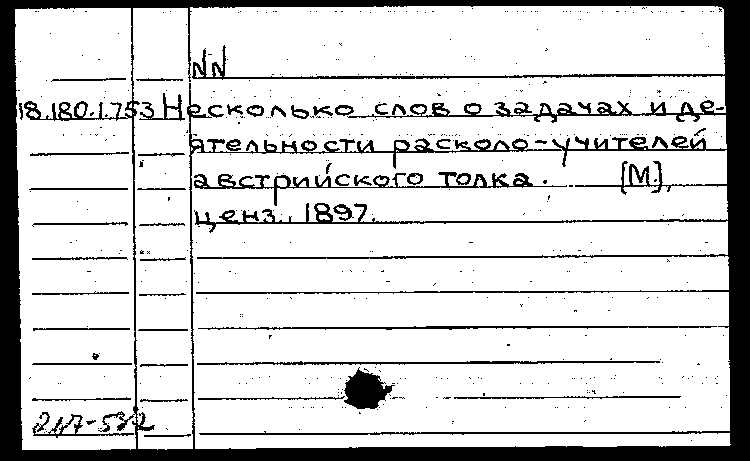 NN
18.180.1.753 Несколько слов о задачах и де-
ятельности расколо-учителей
австрийского толка. [М.],
ценз., 1897.
247-532